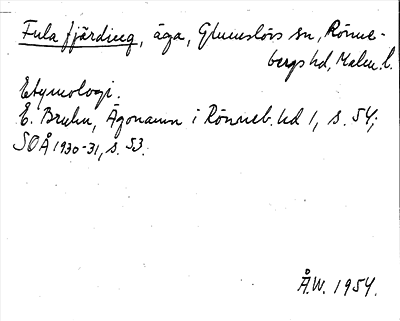 Fula fjärding, äga, Glumslövs sn, Rönne-
bergs hd, Malm. l.
Etymologi.
E. Bruhn, Ägonamn i Rönneb. hd 1, s. 54;
SOÅ 1930-31, s. 53.
Å.W. 1954.